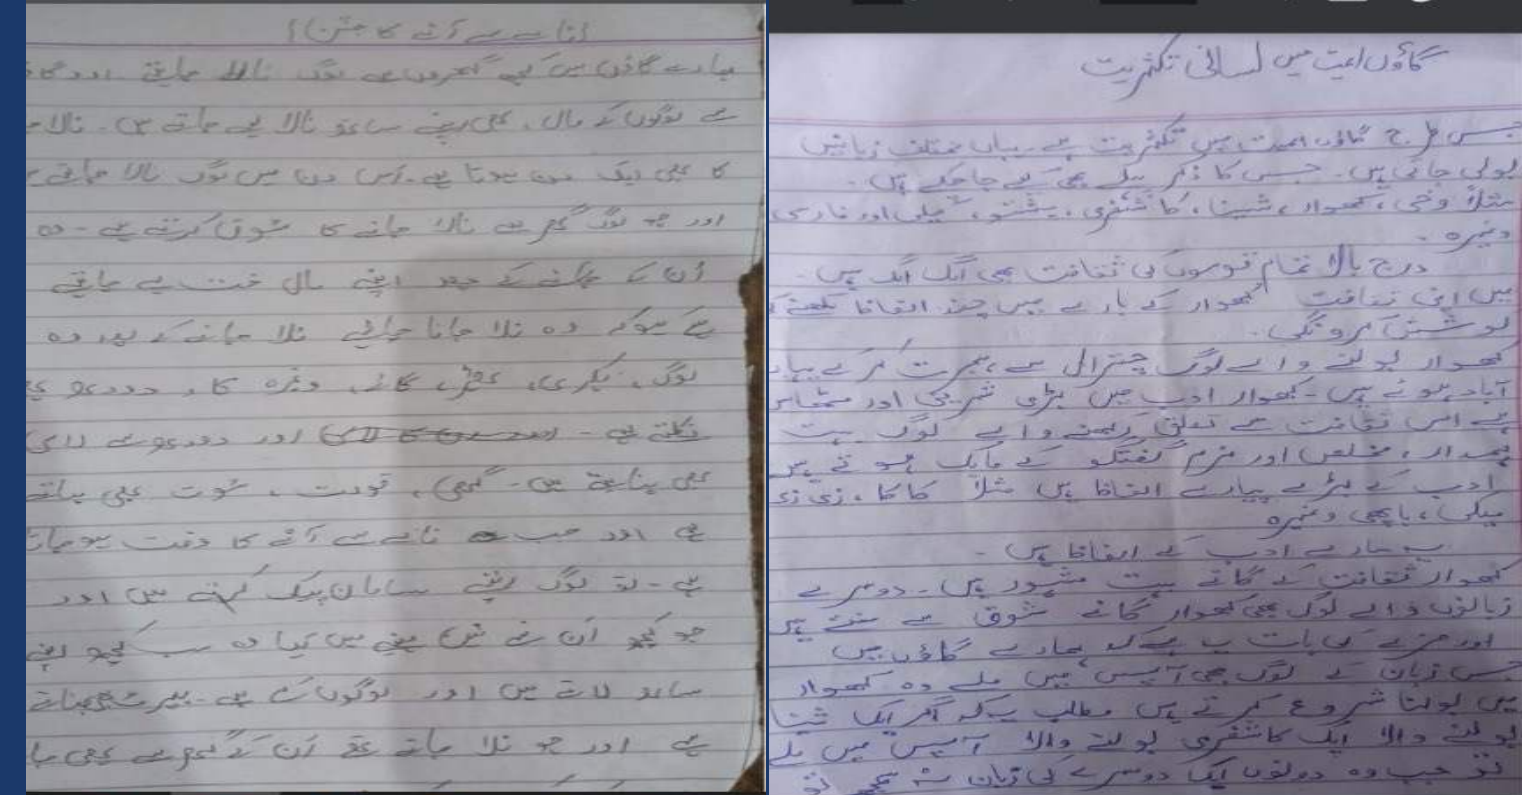 نالے سے آنے کا جشن
ہمارے گاؤں میں کچھ گھروں سے لوگ نالا جاتے اور
ہے لوگوں کے مال بھی اپنے ساتھ نالا لے جاتے ہیں۔ نالا
کا بھی ایک دن ہوتا ہے۔ اس دن میں لوگ نالا جاتے
اور جو لوگ گھر سے نالا جانے کا شوق کرتے ہے۔ وہ
اُن کے اپنے مال لے جاتے
ہے وہ نالا جانا نالا جانے کے بعد وہ
لوگ، بکری، گائے، وغیرہ کا دودھ
نکلتے ہے۔ اور دودھ سے لسی
بھی بناتے ہیں۔ بھی بناتے
ہے اور جب نالے سے آنے کا وقت ہو جاتا
ہے۔ تو لوگ اپنے سامان پیک کرتے ہیں اور
جو کچھ اُن نے تین مہینے میں کیا وہ سب کچھ اپنے
ساتھ لاتے ہیں اور لوگوں
ہے اور جو نالا جاتے تھے اُن کے گھر سے بھی
گاؤں امیت میں لسانی تکثیریت
جس طرح گاؤں امیت میں تکثیریت ہے۔ یہاں مختلف زبانیں
بولی جاتی ہیں۔ جس کا ذکر پہلے بھی کیے جا چکے ہیں۔
مثلاً وخی، کھوار، شینا، کاشغری، پشتو، اور فارسی
وغیرہ۔
درج بالا تمام قوموں کی ثقافت بھی الگ الگ ہیں۔
میں اپنی ثقافت کھوار کے بارے میں چند الفاظ لکھنے کی
کوشش کرونگی۔
کھوار بولنے والے لوگ چترال سے ہجرت کر کے یہاں
آباد ہوئے ہیں۔ کھوار ادب میں بڑی اور مٹھاس
ہے اس ثقافت سے تعلق رکھنے والے لوگ بہت
مخلص اور نرم گفتگو کے مالک ہوتے ہیں
ادب کے بڑے پیارے الفاظ ہیں مثلاً کاکا،
وغیرہ
یہ سارے ادب کے الفاظ ہیں۔
کھوار ثقافت کے گانے بہت مشہور ہیں۔ دوسرے
زبانوں والے لوگ بھی کھوار گانے شوق سے سنتے ہیں
اور مزے کی بات یہ ہے کہ ہمارے گاؤں میں
جس زبان کے لوگ بھی آپس میں ملے وہ کھوار
میں بولنا شروع کرتے ہیں مطلب یہ کہ اگر ایک شینا
بولنے والا ایک کاشغری بولنے والا آپس میں ملے
تو جب وہ دونوں ایک دوسرے کی زبان نہ سمجھے تو